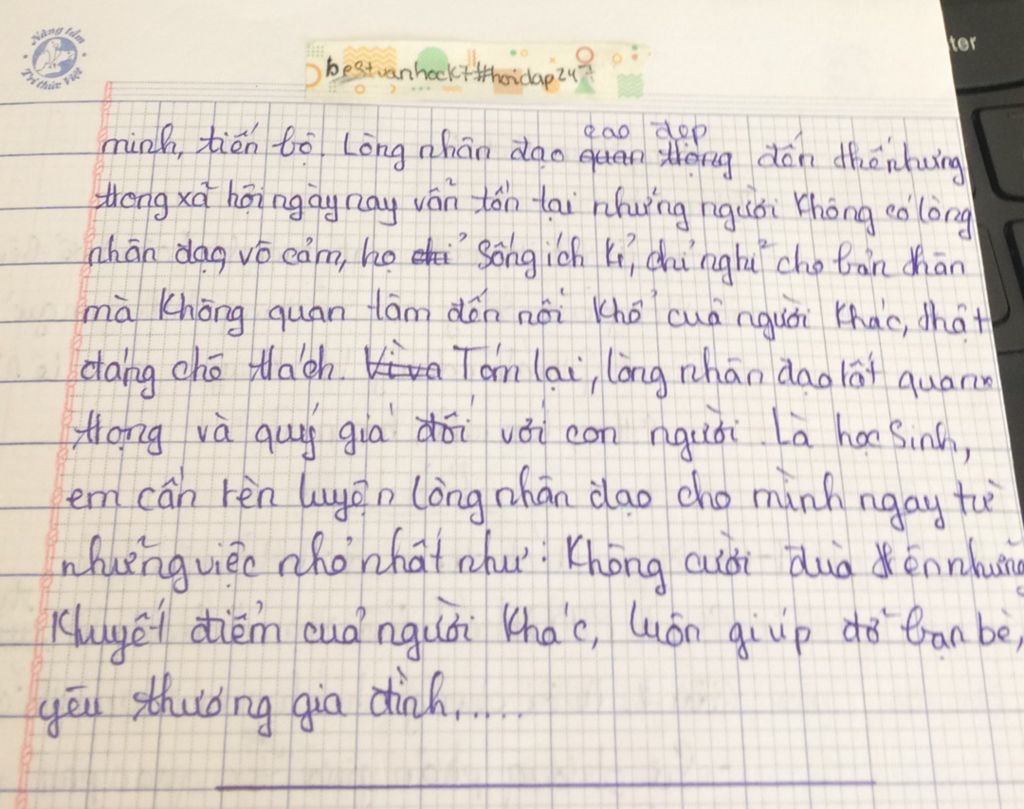 Nâng tầm
Tri thức Việt
bestvanhock7#hoidap247
ter
minh, tiến bộ. Lòng nhân đạo cao đẹp quan trọng đến thế nhưng
trong xã hội ngày nay vẫn tồn tại những người không có lòng
nhân đạo, vô cảm, họ chỉ sống ích kỉ, chỉ nghĩ cho bản thân
mà không quan tâm đến nỗi khổ của người khác, thật
đáng chê trách. Vì va Tóm lại, lòng nhân đạo rất quan
trọng và quý giá đối với con người. Là học sinh,
em cần rèn luyện lòng nhân đạo cho mình ngay từ
những việc nhỏ nhất như: Không cười đùa trên những
khuyết điểm của người khác, luôn giúp đỡ bạn bè,
yêu thương gia đình,.....